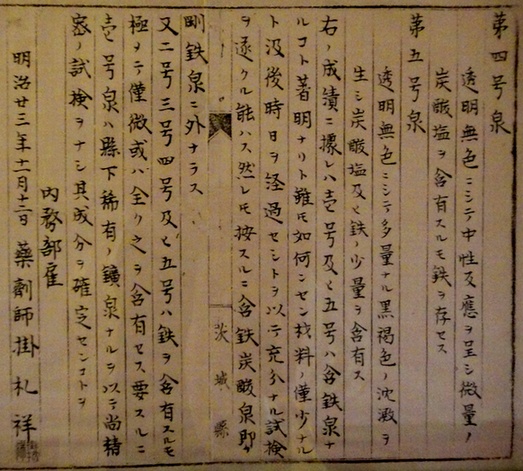 第四号泉
透明無色ニシテ中性反應ヲ呈シ微量ノ
炭酸塩ヲ含有スルモ鉄ヲ存セス
第五号泉
透明無色ニシテ多量ナル黒褐色ノ沈澱ヲ
生シ炭酸塩及ヒ鉄ノ少量ヲ含有ス
右ノ成績ニ據レハ壱号及ヒ五号ハ含鉄泉ナ
ルコト著明ナリト雖モ如何ンセン材料ノ僅少ナル
ト汲後時日ヲ経過セシトヲ以テ充分ナル試検
ヲ遂クル能ハス然レモ按スルニ含鉄炭酸泉即
茨城縣
剛鉄泉ニ外ナラス
又二号三号四号及ヒ五号ハ鉄ヲ含有スルモ
極メテ僅微或ハ全ク之ヲ含有セス要スルニ
壱号泉ハ縣下稀有ノ鑛泉ナルヲ以テ尚精
密ノ試検ヲナシ其成分ヲ確定センコトヲ
内務部雇
明治廿三年十二月十二日 藥劑師 掛札祥